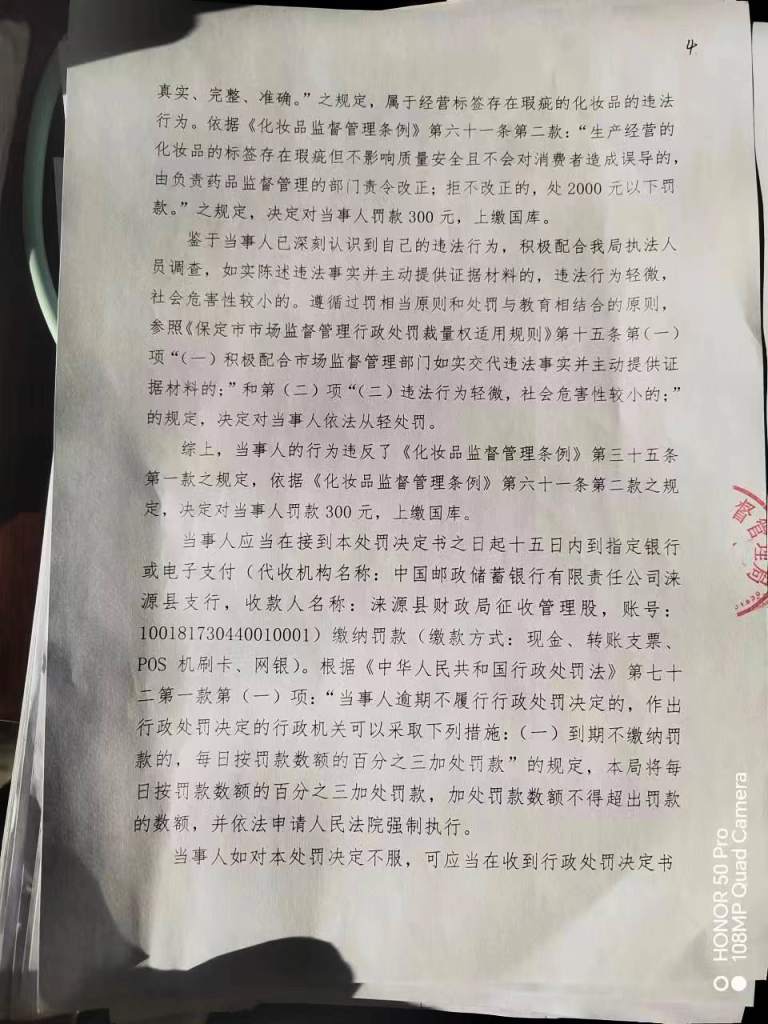 4
真实、完整、准确。”之规定，属于经营标签存在瑕疵的化妆品的违法
行为。依据《化妆品监督管理条例》第六十一条第二款：“生产经营的
化妆品的标签存在瑕疵但不影响质量安全且不会对消费者造成误导的，
由负责药品监督管理的部门责令改正；拒不改正的，处2000元以下罚
款。”之规定，决定对当事人罚款300元，上缴国库。
鉴于当事人已深刻认识到自己的违法行为，积极配合我局执法人
员调查，如实陈述违法事实并主动提供证据材料的，违法行为轻微，
社会危害性较小的。遵循过罚相当原则和处罚与教育相结合的原则，
参照《保定市市场监督管理行政处罚裁量权适用规则》第十五条第（一）
项“（一）积极配合市场监督管理部门如实交代违法事实并主动提供证
据材料的；”和第（二）项“（二）违法行为轻微，社会危害性较小的；”
的规定，决定对当事人依法从轻处罚。
综上，当事人的行为违反了《化妆品监督管理条例》第三十五条
第一款之规定，依据《化妆品监督管理条例》第六十一条第二款之规
定，决定对当事人罚款300元，上缴国库。
当事人应当在接到本处罚决定书之日起十五日内到指定银行
或电子支付（代收机构名称：中国邮政储蓄银行有限责任公司涞
源县支行，收款人名称：涞源县财政局征收管理股，账号：
100181730440010001）缴纳罚款（缴款方式：现金、转账支票、
POS 机刷卡、网银）。根据《中华人民共和国行政处罚法》第七十
二第一款第（一）项：“当事人逾期不履行行政处罚决定的，作出
行政处罚决定的行政机关可以采取下列措施：（一）到期不缴纳罚
款的，每日按罚款数额的百分之三加处罚款”的规定，本局将每
日按罚款数额的百分之三加处罚款，加处罚款数额不得超出罚款
的数额，并依法申请人民法院强制执行。
当事人如对本处罚决定不服，可应当在收到行政处罚决定书
督管理局
HONOR 50 Pro
108MP Quad Camera